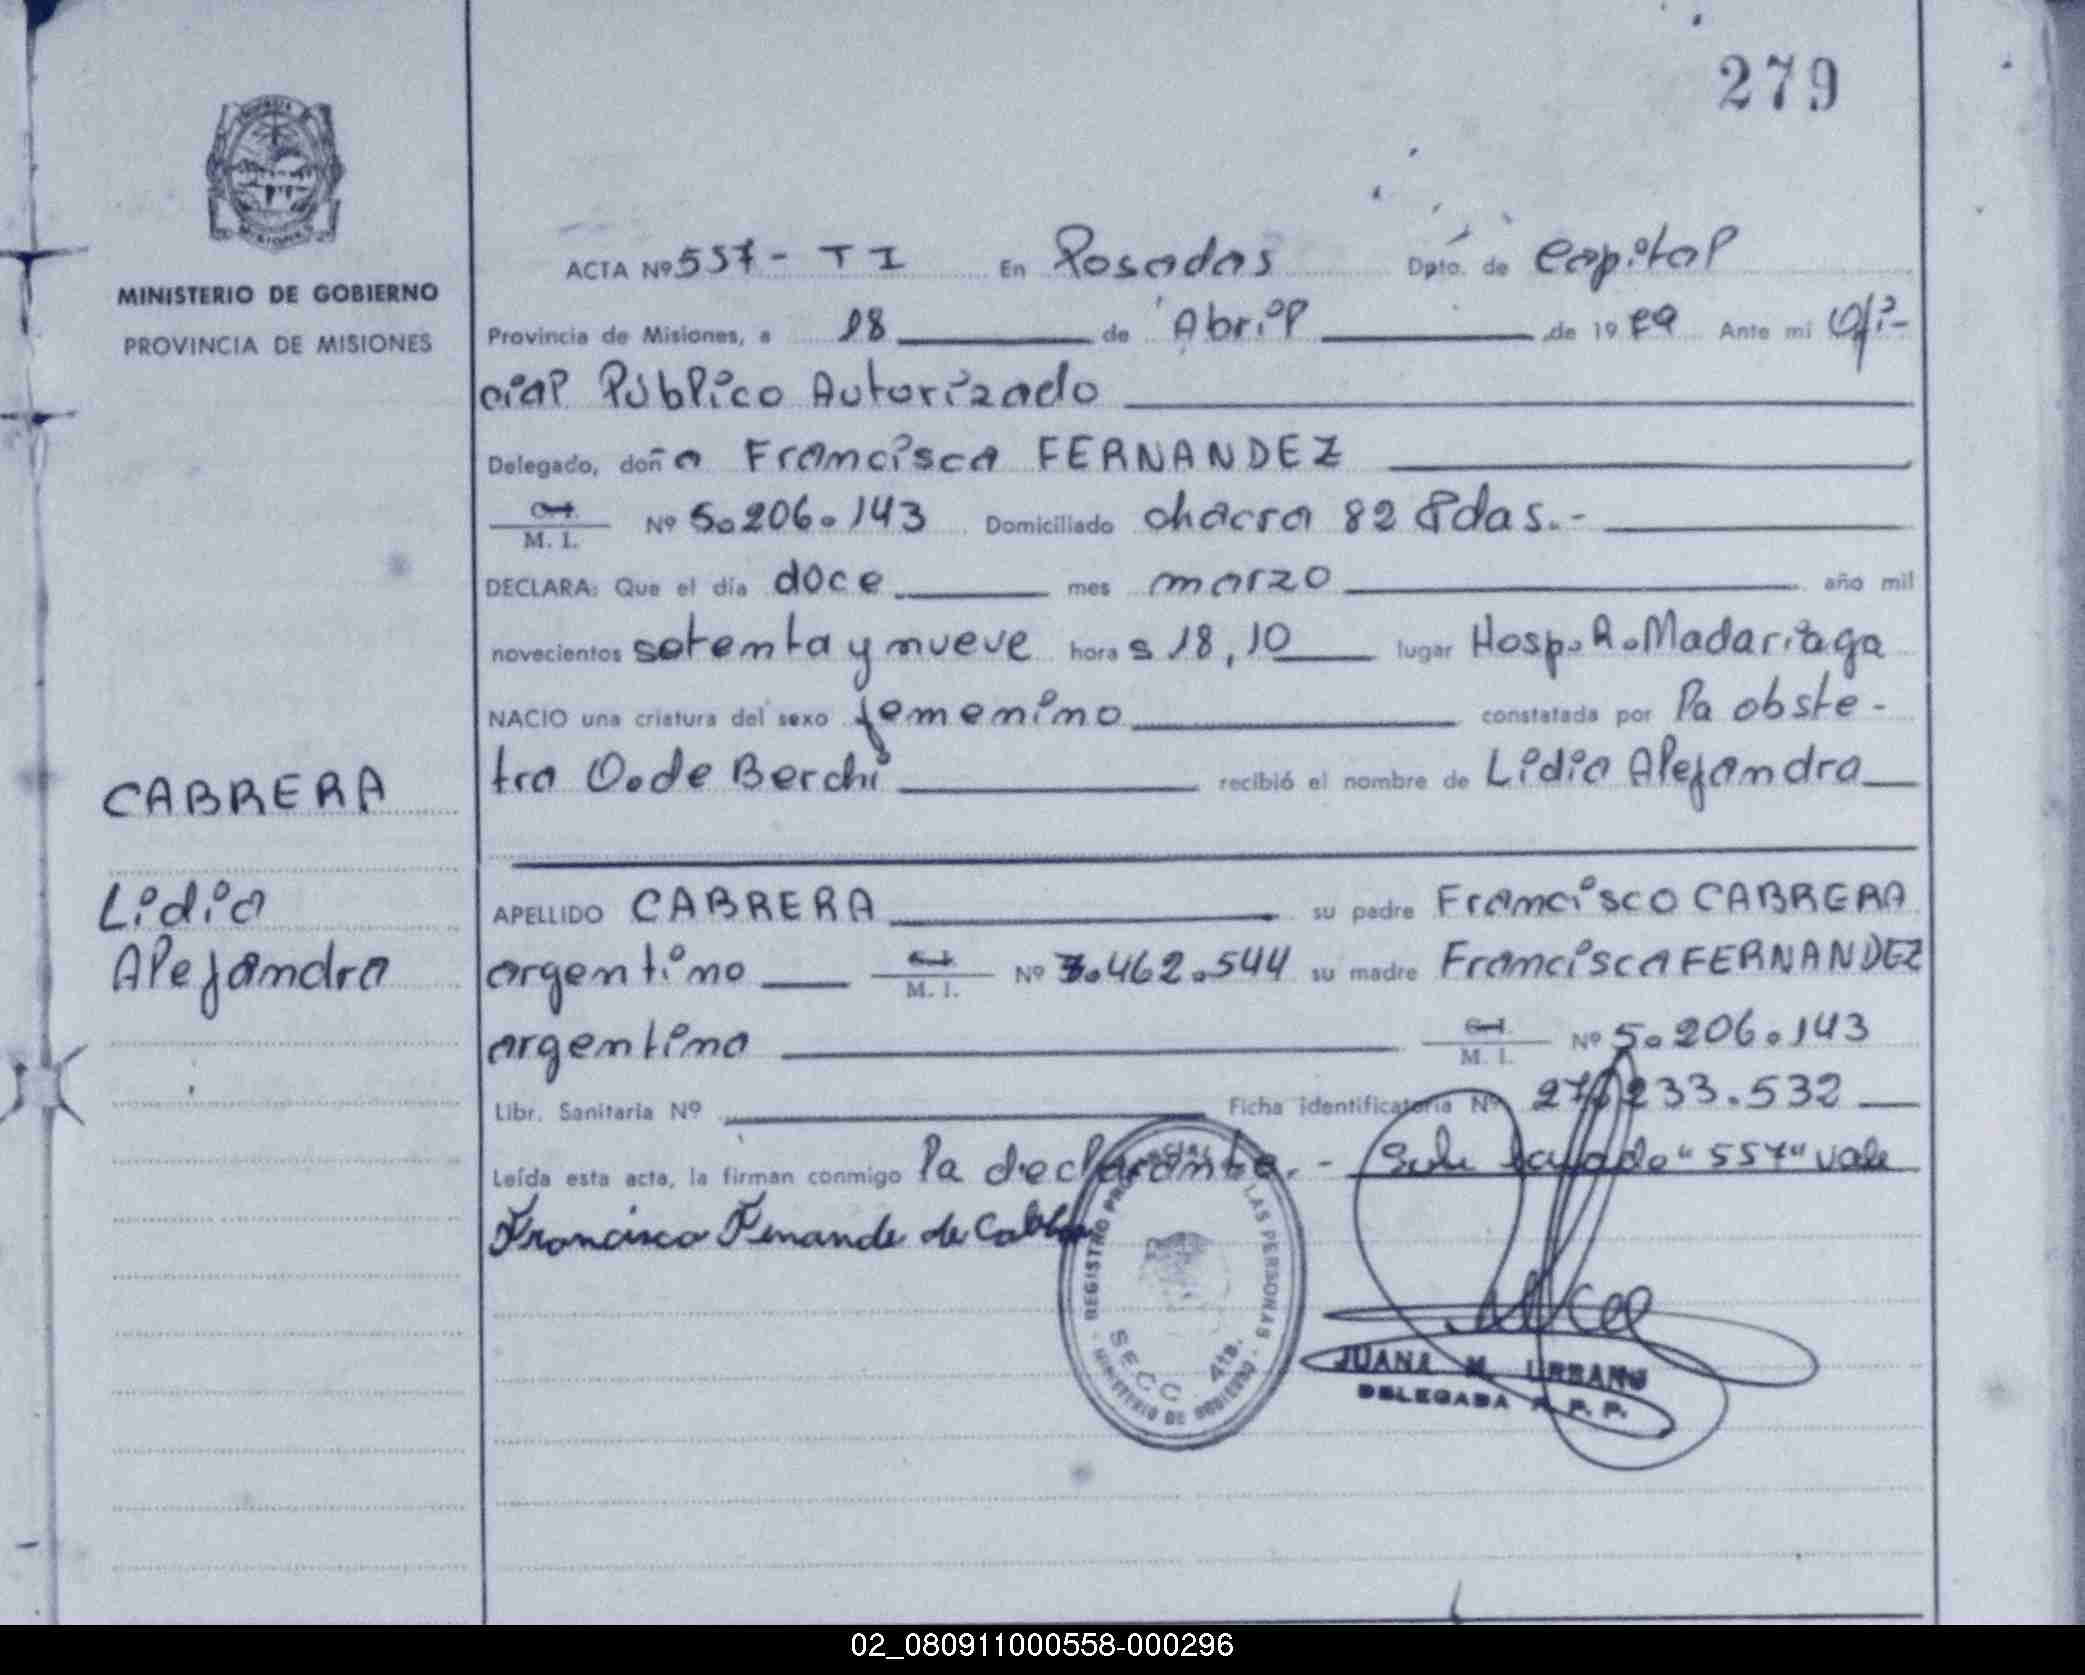 279
MINISTERIO DE GOBIERNO
PROVINCIA DE MISIONES
CABRERA
Lidia
Alejandra
ACTA Nº 557 - T I En Posadas Dpto. de Capital
Provincia de Misiones, a 18 de Abril de 1979 Ante mi Ofi-
cial Público Autorizado
Delegado, doña Francisca FERNANDEZ
C.I. M. I. Nº 5.206.143 Domiciliado chacra 82 Pdas.-
DECLARA: Que el día doce mes marzo año mil
novecientos setenta y nueve horas 18,10 lugar Hosp. R. Madariaga
NACIO una criatura del sexo femenino constatada por la obste-
tra O. de Berchi recibió el nombre de Lidia Alejandra
APELLIDO CABRERA su padre Francisco CABRERA
argentino C.I. M. I. Nº 7.462.544 su madre Francisca FERNANDEZ
argentina C.I. M. I. Nº 5.206.143
Libr. Sanitaria Nº Ficha identificatoria Nº 27.233.532
Leída esta acta, la firman conmigo la declarante.- "557" vale
Francisca Fernande de
REGISTRO PROVINCIAL LAS PERSONAS
MINISTERIO DE GOBIERNO
SECC. 4ta.
JUANA M. URBANO
DELEGADA R. P. P.
02_080911000558-000296